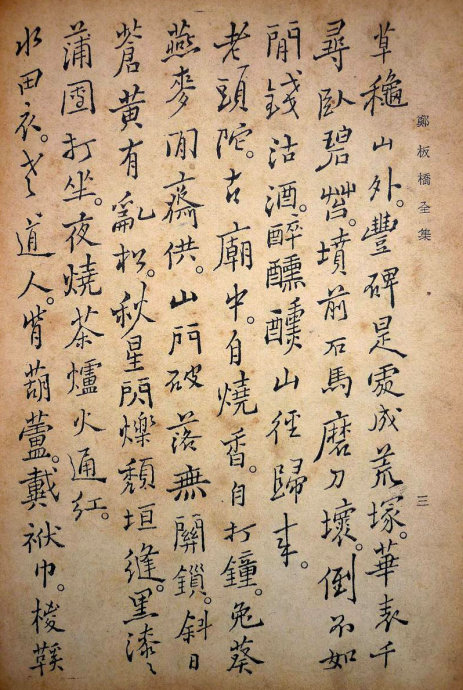 鄭板橋全集
三
草穐山外。豐碑是處成荒塚。華表千
尋臥碧苔。墳前石馬磨刀壞。倒不如
閒錢沽酒。醉醺醺山徑歸來。
老頭陀。古廟中。自燒香。自打鐘。兔葵
燕麥閒齋供。山門破落無關鎖。斜日
蒼黃有亂松。秋星閃爍頹垣縫。黑漆〻
蒲團打坐。夜燒茶爐火通紅。
水田衣。老道人。背葫蘆。戴袱巾。棕鞵